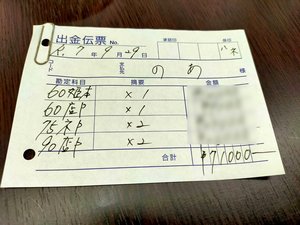 出金伝票 No.
承認印 係印
7年9月29日 ハネ
コード 支払先 のあ 様
勘定科目 摘要 金額
60姫本 ×1
60店P ×1
75ネP ×2
90店P ×2
合計 ¥71000-